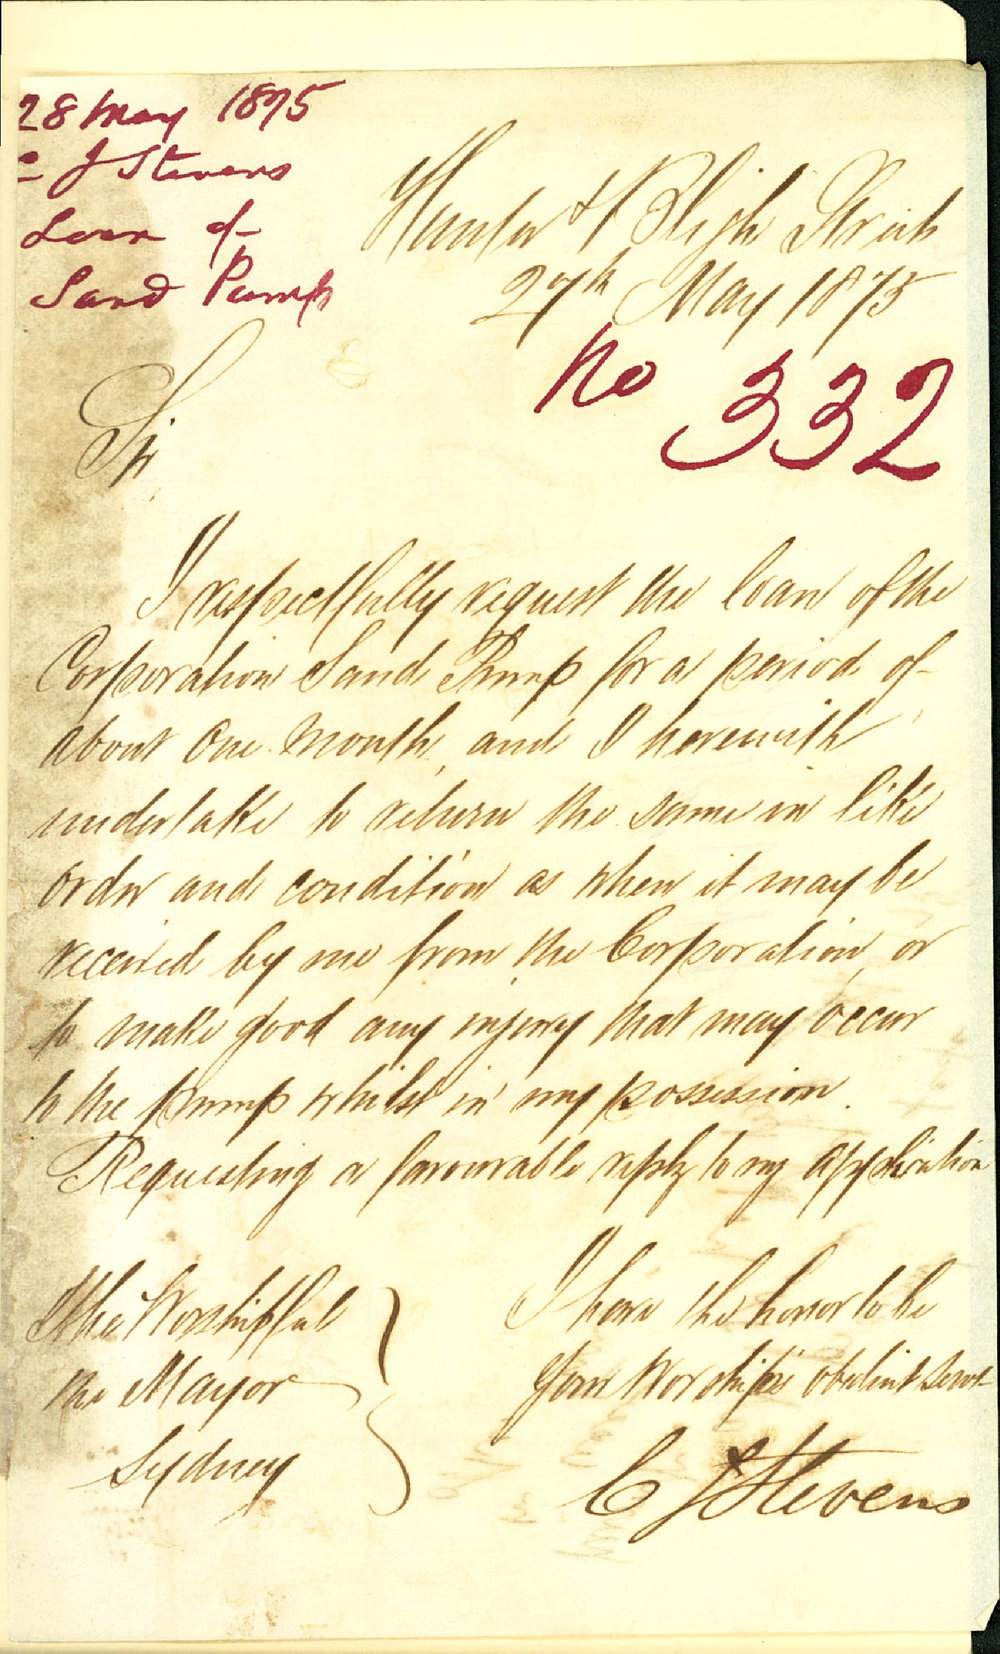 28 May 1875
C J Stevens
Loan of
Sand Pump
Hunter & Bligh Streets
27th May 1875
No 332
Sir
I respectfully request the loan of the
Corporation Sand Pump for a period of
about one month, and I herewith
undertake to return the same in like
order and condition as when it may be
received by me from the Corporation, or
to make good any injury that may occur
to the pump whilst in my possession.
Requesting a favourable reply to my application
I have the honor to be
Your Worship's obedient Servt
C J Stevens
The Worshipful
the Mayor
Sydney